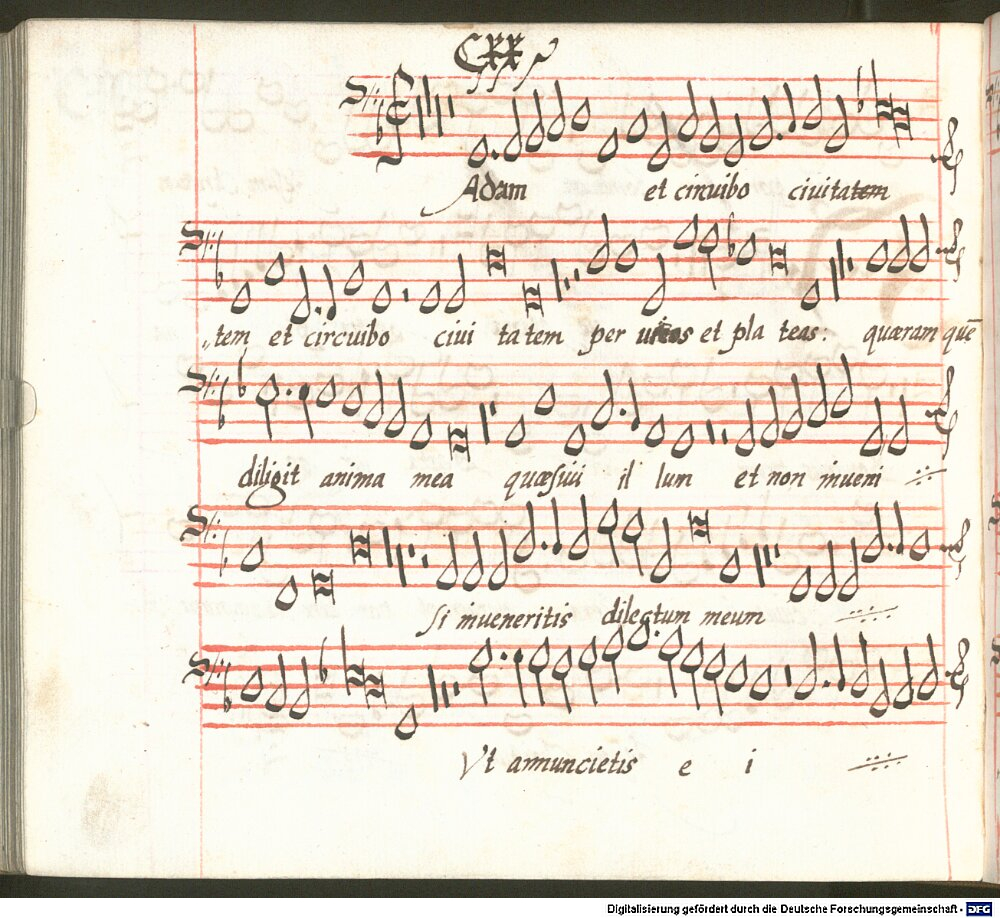 CXX
Adam et circuibo ciuitatem
tem et circuibo ciui ta tem per uicos et pla teas: quæram quē
diligit anima mea quæsiui il lum et non inueni
Si inueneritis dilectum meum
Vt annuncietis e i
Digitalisierung gefördert durch die Deutsche Forschungsgemeinschaft - DFG